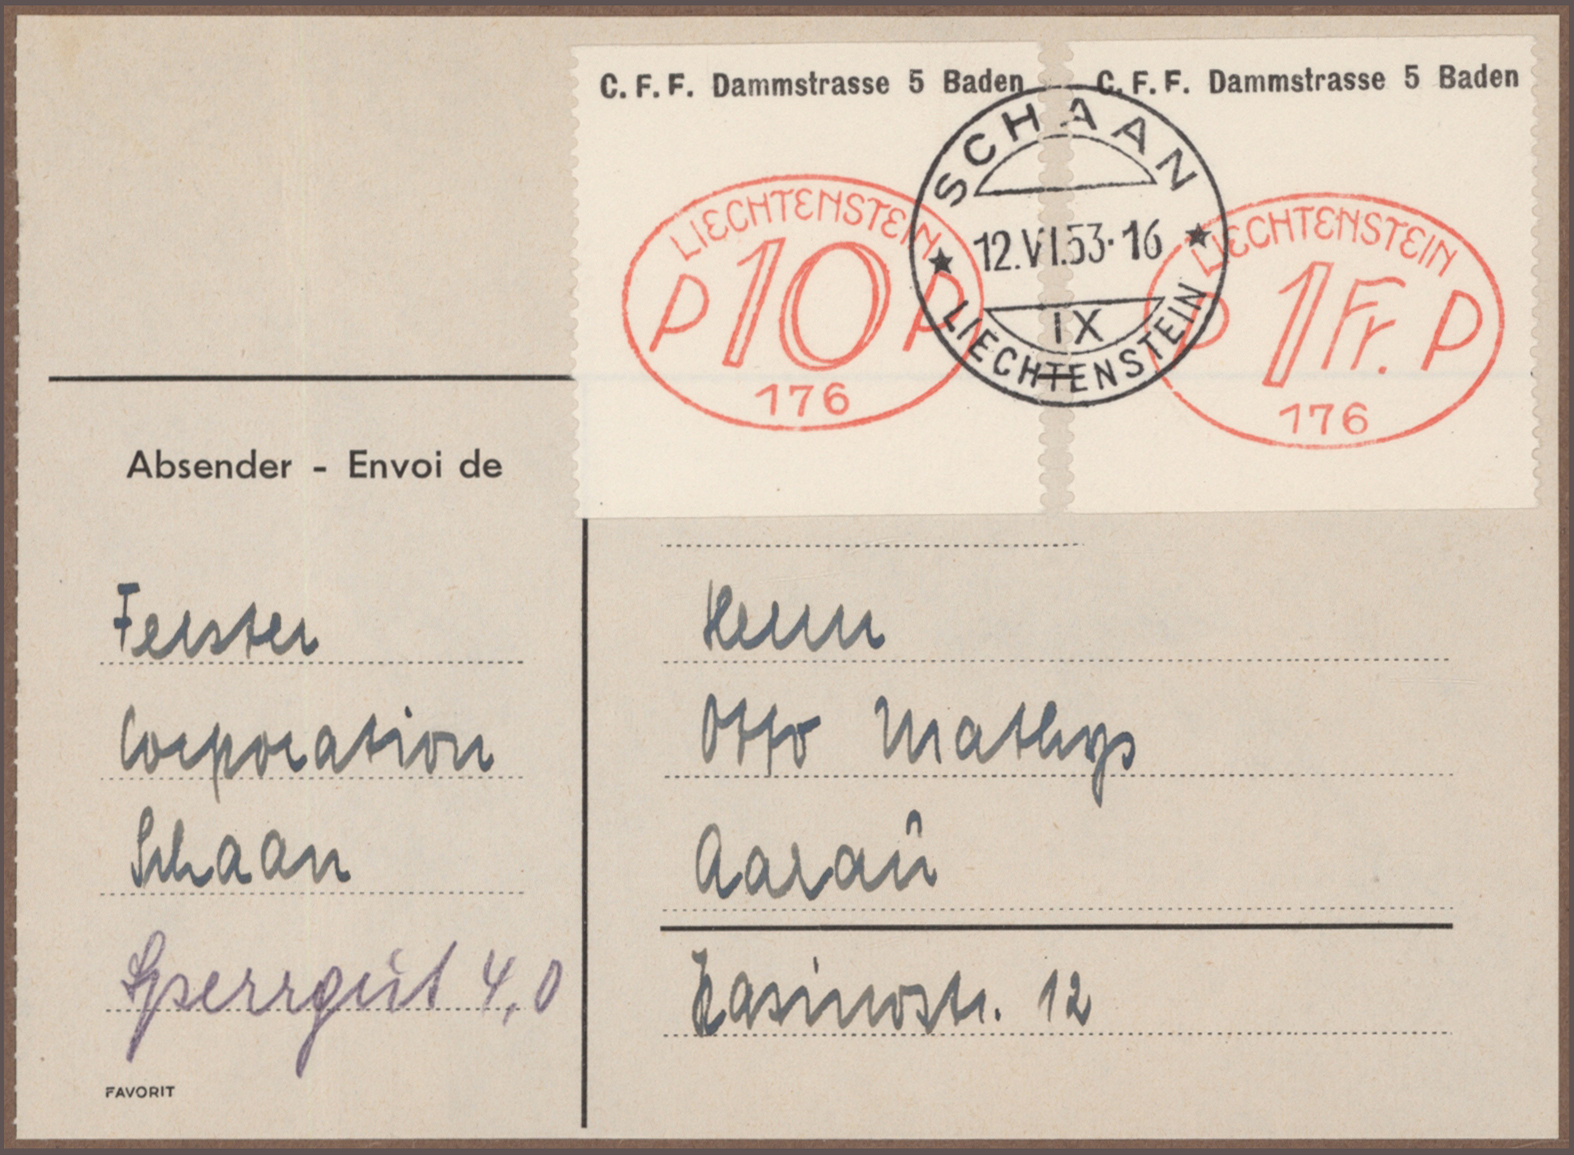 C. F. F. Dammstrasse 5 Baden
LIECHTENSTEIN
P 10 P
176
C. F. F. Dammstrasse 5 Baden
LIECHTENSTEIN
P 1 Fr. P
176
SCHAAN
12.VI.53-16
IX
LIECHTENSTEIN
Absender - Envoi de
Ferster
Corporation
Schaan
Sperrgut 4,0
FAVORIT
Herrn
Otto Mathys
Aarau
Kasinostr. 12